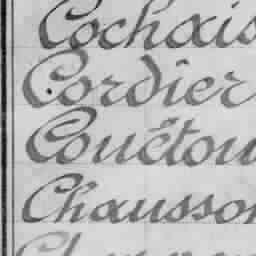 Cochois
Cordier
Couëtou
Chausson